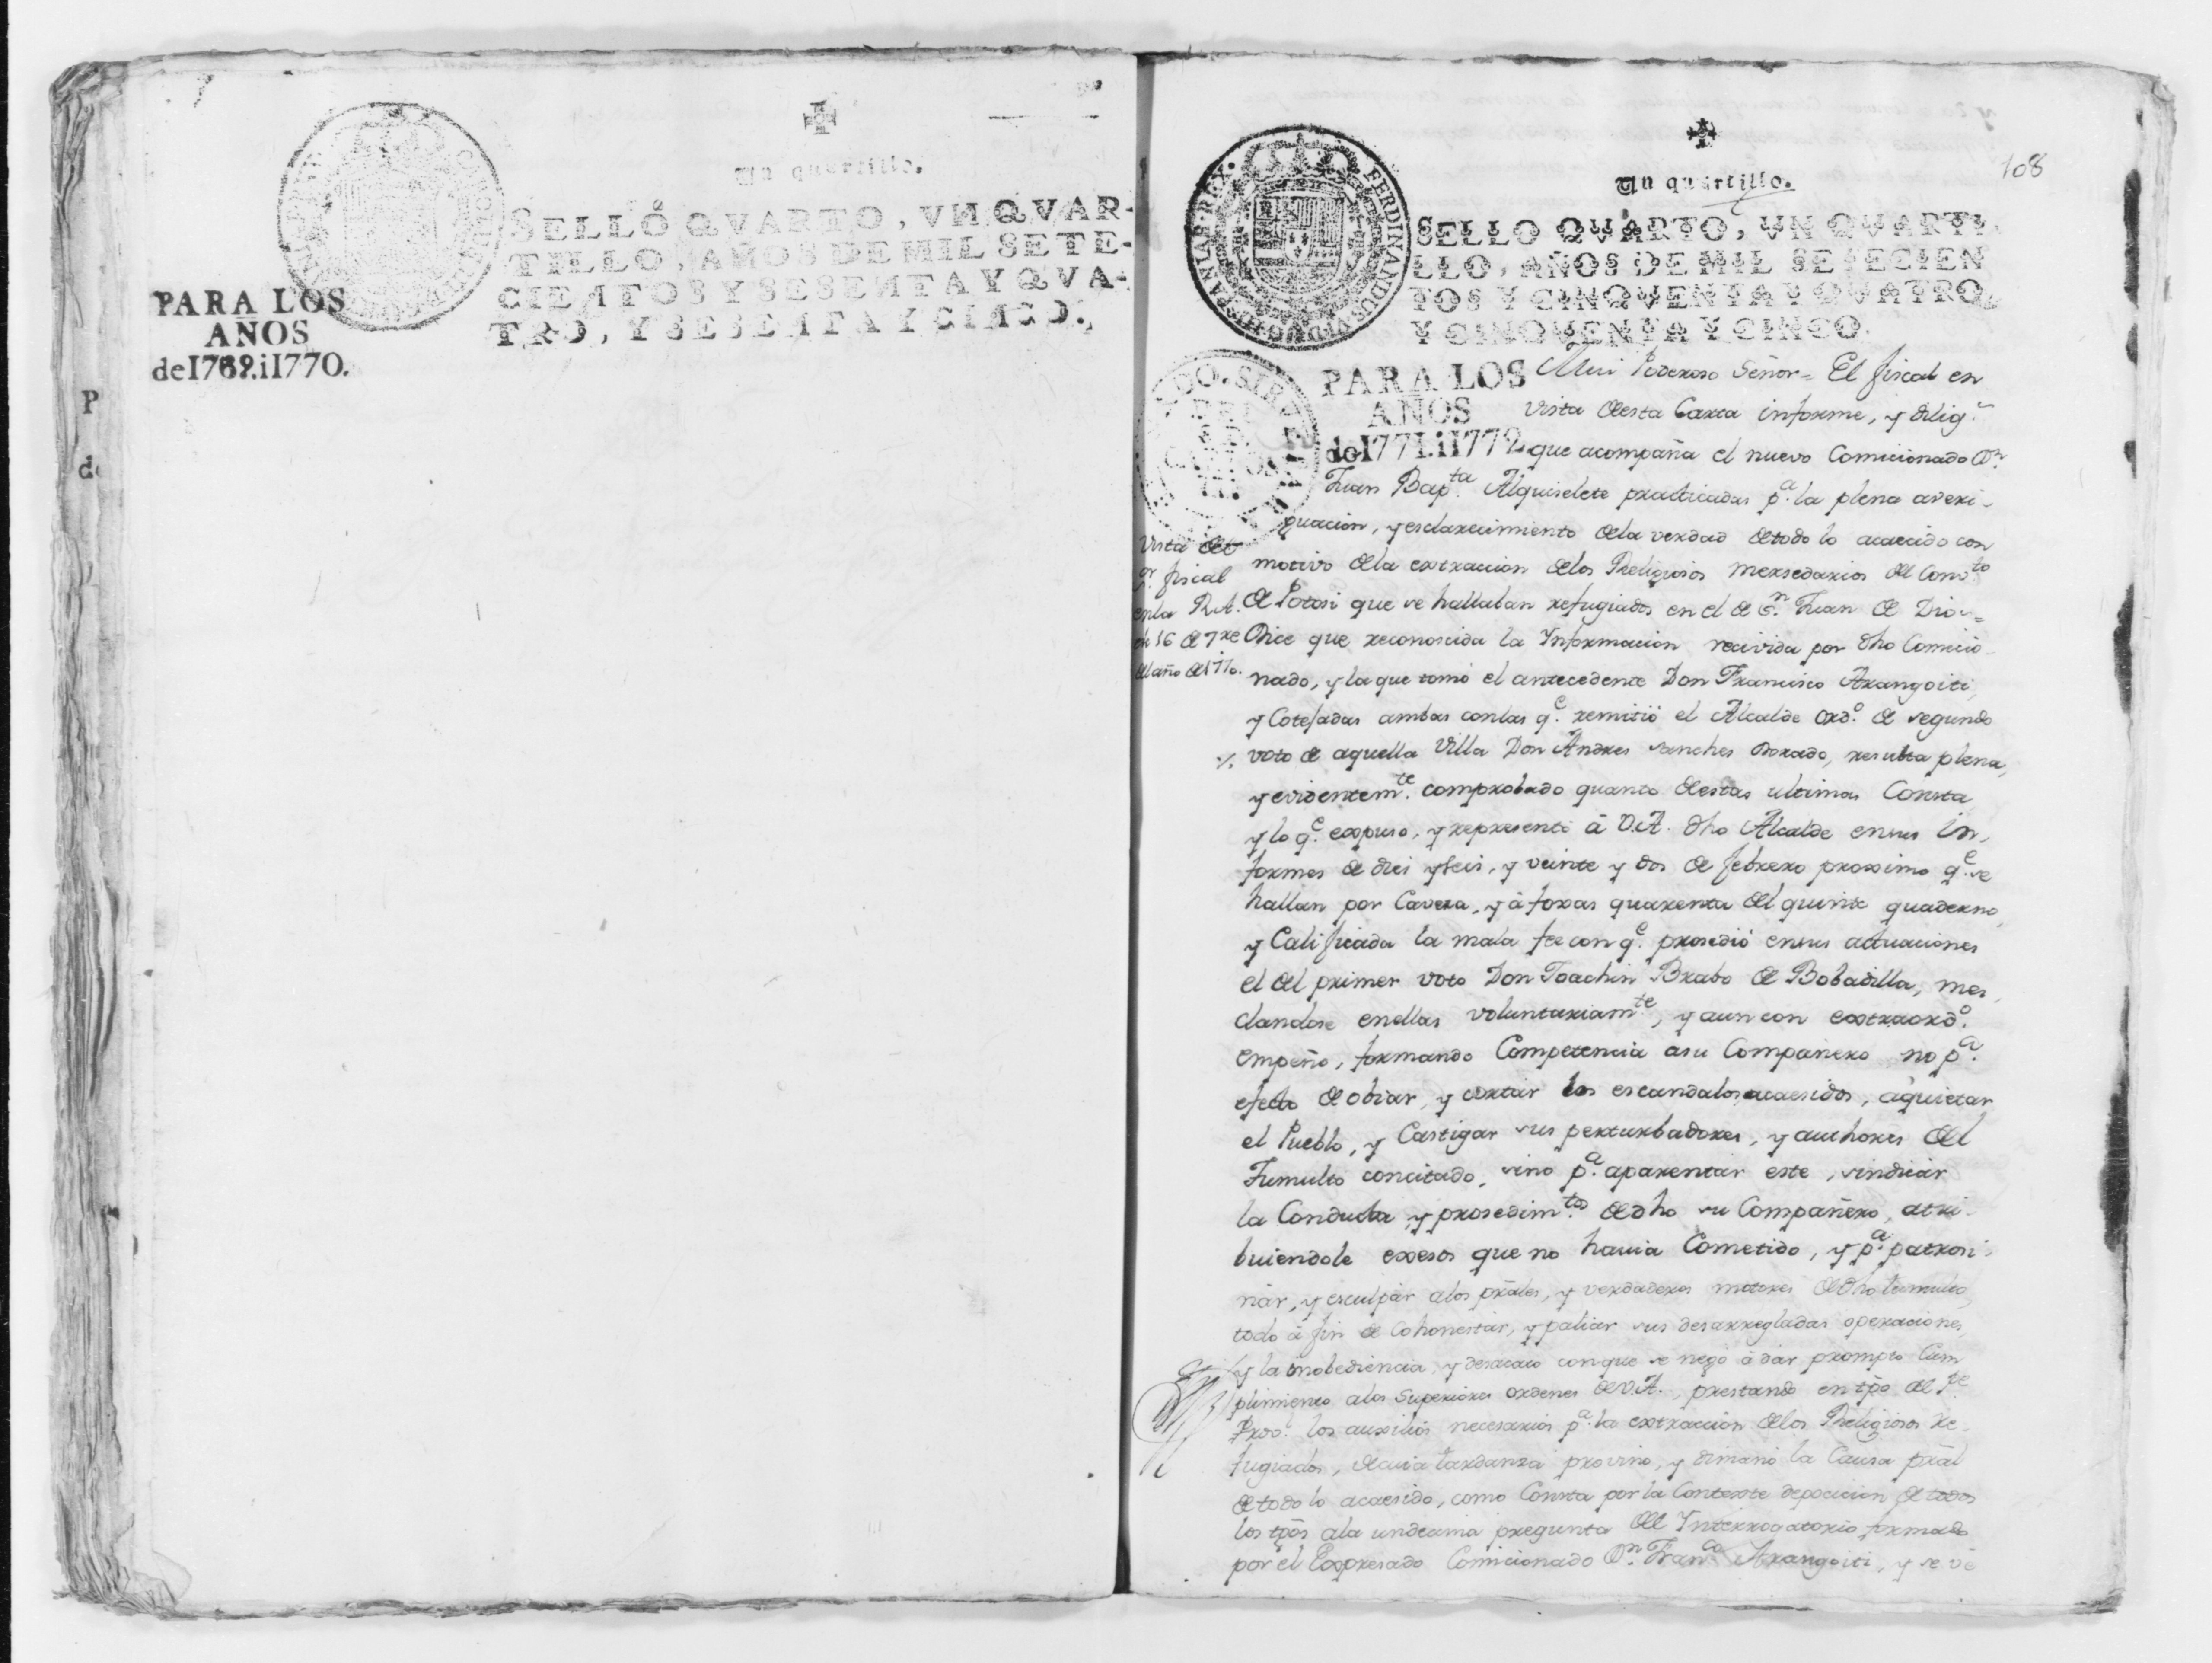 Un quartillo.
SELLO QVARTO, VN QVAR-
TILLO, AÑOS DE MIL SETE-
CIENTOS Y SESENTA Y QVA-
TRO, Y SESENTA Y CINCO.
PARA LOS
AÑOS
de 1769. i 1770.
108
Un quartillo.
SELLO QVARTO, VN QVARTI
LLO, AÑOS DE MIL SETECIEN
TOS Y CINQVENTA Y QVATRO,
Y CINQVENTA Y CINCO.
HISPANIAR. REX. FERDINANDUS VI D.G.
PARA LOS
AÑOS
de 1771. i 1772.
Vista del
or. fiscal
en la R.A.
de 16 de 7re
del año de 1770.
Mui Poderoso Señor = El fiscal en
vista desta Carta informe, y dilig.s
que acompaña el nuevo Comicionado Dn.
Juan Bap.ta Alquiselete practicadas p.a la plena averi-
guacion, y esclarecimiento dela verdad de todo lo acaecido con
motivo dela extraccion delos Religiosos mersedarios del Conv.to
de Potosi que se hallaban refugiados en el de Sn. Juan de Dios =
Dice que reconoscida la Informacion recivida por dho Comicio-
nado, y la que tomó el antecedente Don Francisco Arangoiti,
y Cotejadas ambas con las q.e remitió el Alcalde ord.o de segundo
voto de aquella Villa Don Andres Sanches Dorado, resulta plena,
y evidentem.te comprobado quanto destas ultimas Consta
y lo q.e expuso, y representó á V.A. dho Alcalde en sus in-
formes de dies y seis, y veinte y dos de febrero proximo q.e se
hallan por Cavesa, y á foxas quarenta del quinto quaderno,
y Calificada la mala fee con q.e prosedió en sus actuaciones
el del primer voto Don Joachin Brabo de Bobadilla, mes-
clandose en ellas voluntariam.te, y aun con extraord.o
empeño, formando Competencia asu Compañero no p.a
efecto de obiar, y cortar los escandalos acaesidos, aquietar
el Pueblo, y Castigar sus perturbadores, y authores del
Tumulto concitado, sino p.a aparentar este, sindicar
la Conducta, y prosedim.tos de dho su Compañero, atri-
buiendole exesos que no havia Cometido, y p.a patrosi-
nar, y esculpar alos prãles, y verdaderos motores de dho tumulto,
todo á fin de Cohonestar, y paliar sus desarregladas operaciones,
y la inobediencia, y desacato con que se negó á dar prompto Cum
plimiento alos Superiores ordenes de V.A., prestando en tpõ al Pe
Prov.l los auxilios necesarios p.a la extraccion delos Religiosos Re-
fugiados, de cuia tardanza provino, y dimanó la Causa prãl
de todo lo acaesido, como Consta por la Conteste deposicion de todos
los tgõs ala undecima pregunta del Interrogatorio formado
por el Expresado Comicionado Dn. Fran.co Arangoiti, y se vé